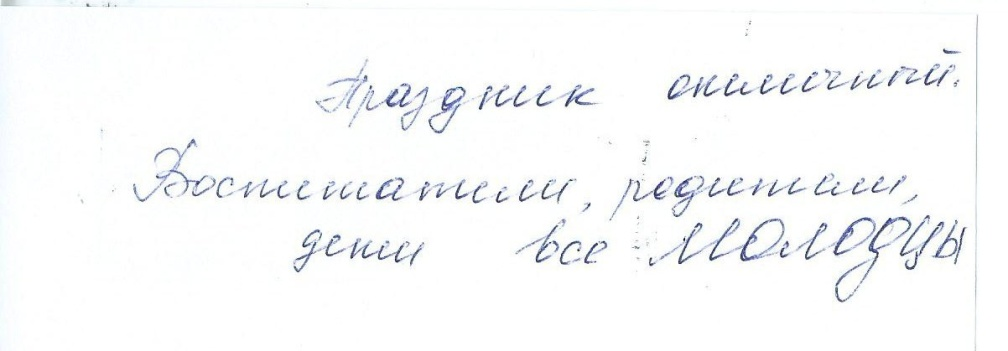 Праздник отличный.
Воспитатели, родители,
дети все МОЛОДЦЫ